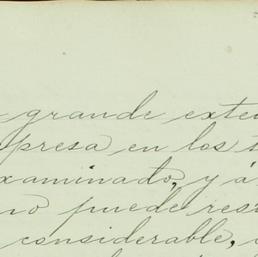 grande exten
presa en los t
xaminado, y á
no puede res
considerable,